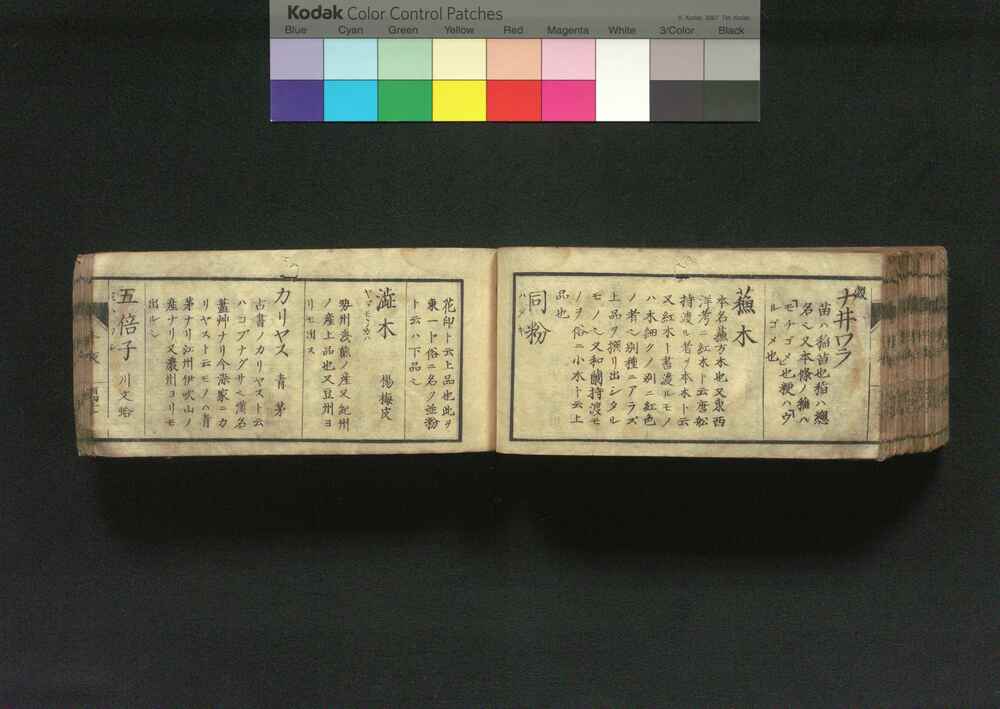 Kodak Color Control Patches
© Kodak, 2007 TM: Kodak
Blue Cyan Green Yellow Red Magenta White 3/Color Black
ナ井ワラ
苗ハ稲苗也稲ハ総
名也又本條ノ稲ハ
モチゴメ也粳ハウ
ルゴメ也
蘓木
本名蘓方木也又東西
洋考ニ紅木ト云唐舩
持渡ル者ヲ本木ト云
又紅木ト書渡ルモノ
ハ木細クノ別ニ紅色
ノ者ニ別種ニアラズ
上品ヲ撰リ出シタル
モノ也又和蘭持渡モ
ノヲ俗ニ小木ト云上
品也
同粉
花印ト云上品也此ヲ
東一ト俗ニ名ノ並粉
ト云ハ下品也
澁木 楊梅皮
勢州
熊ノ産又紀州
ノ産上品也又豆州ヨ
リモ出ス
カリヤス 青茅
古書ノカリヤスト云
ハコブナグサ也漢名
藍艸ナリ今染家ニカ
リヤスト云モノハ青
茅ナリ江州伊吹山ノ
産ナリ又濃州ヨリモ
出ル也
五倍子 川文蛤